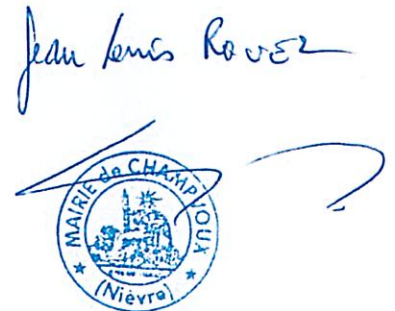 Jean Louis ROUEZ
MAIRIE de CHAMPVOUX
(Nièvre)